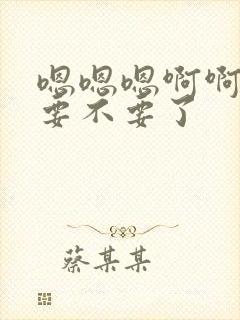 嗯嗯嗯啊啊
要不要了
蔡某某